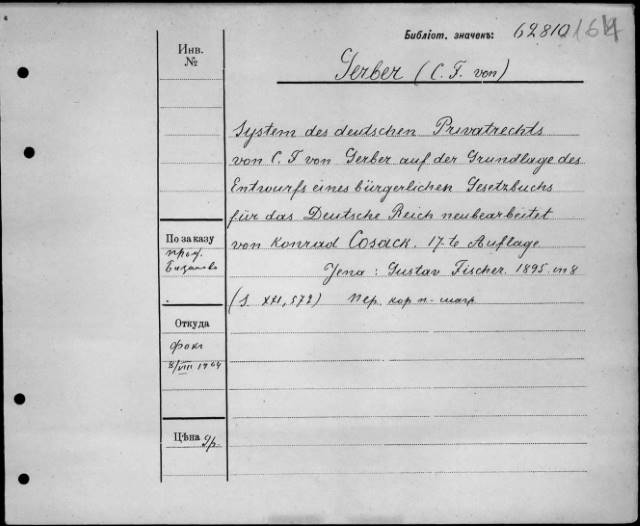 Библіот. значекъ: 62810 164
Инв.
№
Gerber (C. F. von)
System des deutschen Privatrechts
von C. F von Gerber auf der Grundlage des
Entwurfs eines bürgerlichen Gesetzbuchs
für das Deutsche Reich neubearbeitet
von Konrad Cosack. 17-te Auflage
Jena: Gustav Fischer. 1895. in 8
(S. XXI, 572) пер. кор п-шагр
По заказу
проф.
Откуда
Фокъ
8/VIII 1904
Цѣна